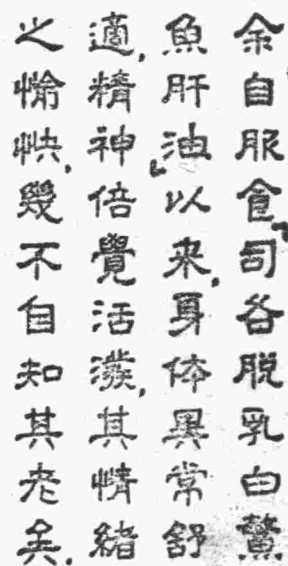 余自服食「司各脱乳白鰵
魚肝油」以来,身体異常舒
適,精神倍覺活潑,其情緒
之愉快,幾不自知其老矣.